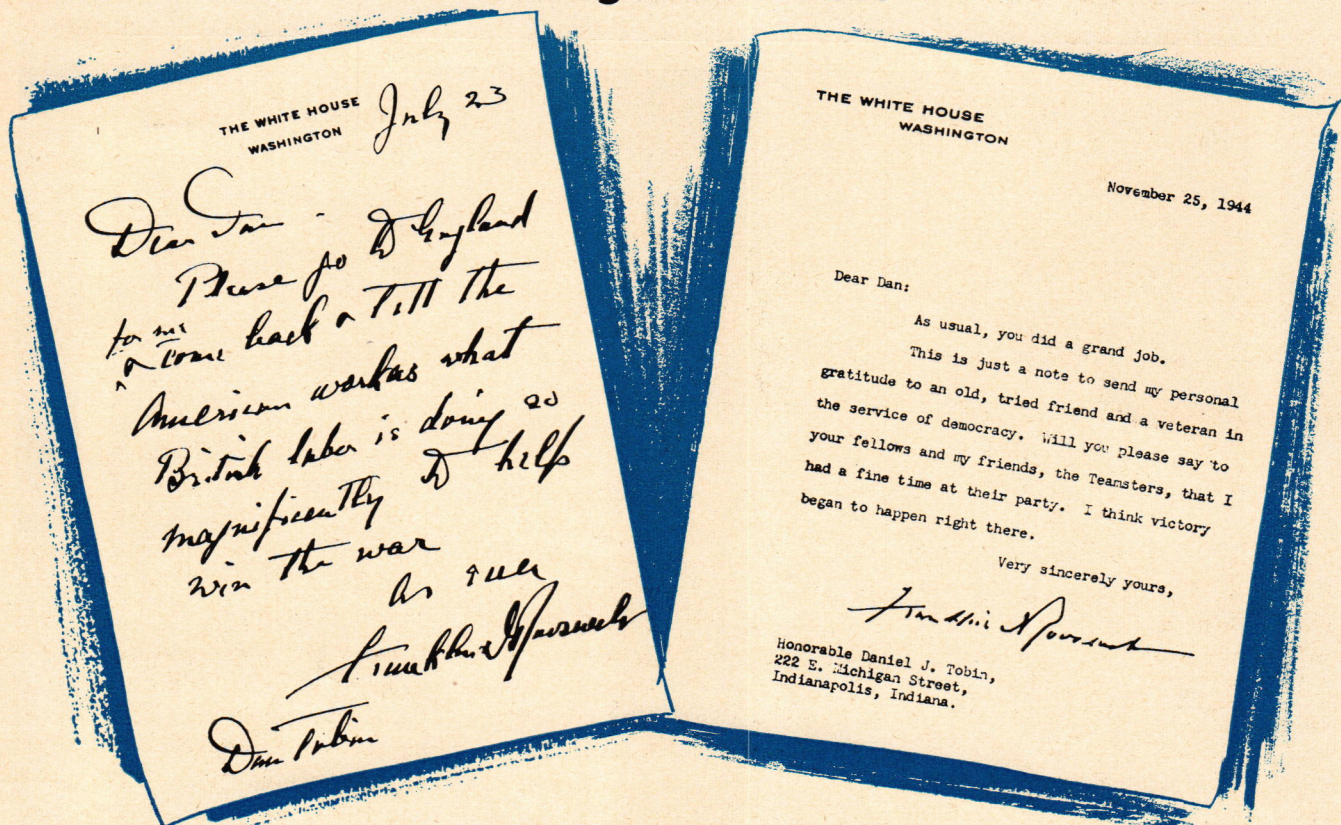 THE WHITE HOUSE
WASHINGTON
July 23
Dear Dan -
Please go to England
for me
& come back & tell the
American workers what
British labor is doing so
magnificently to help
win the war
As ever
Franklin D Roosevelt
Dan Tobin
THE WHITE HOUSE
WASHINGTON
November 25, 1944
Dear Dan:
As usual, you did a grand job.
This is just a note to send my personal
gratitude to an old, tried friend and a veteran in
the service of democracy. Will you please say to
your fellows and my friends, the Teamsters, that I
had a fine time at their party. I think victory
began to happen right there.
Very sincerely yours,
Franklin D Roosevelt
Honorable Daniel J. Tobin,
222 E. Michigan Street,
Indianapolis, Indiana.